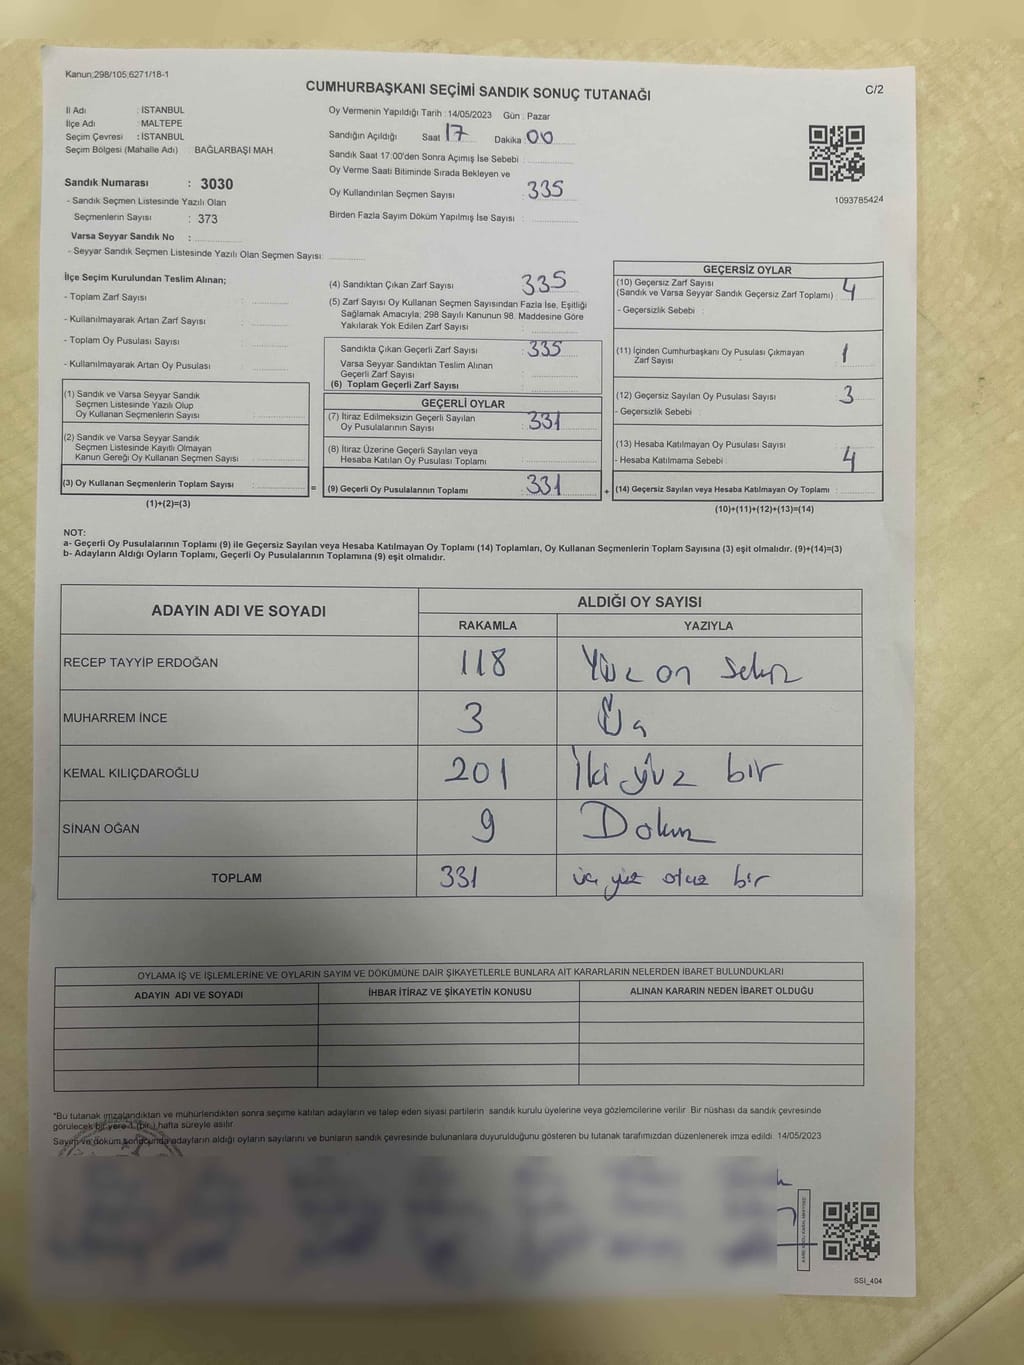 Kanun;298/105,6271/18-1
CUMHURBAŞKANI SEÇİMİ SANDIK SONUÇ TUTANAĞI
C/2
İl Adı : İSTANBUL
İlçe Adı : MALTEPE
Seçim Çevresi : İSTANBUL
Seçim Bölgesi (Mahalle Adı) : BAĞLARBAŞI MAH.
Oy Vermenin Yapıldığı Tarih : 14/05/2023 Gün : Pazar
Sandığın Açıldığı Saat 17 Dakika : 00
Sandık Saat 17:00'den Sonra Açımış İse Sebebi :
Oy Verme Saati Bitiminde Sırada Bekleyen ve
Oy Kullandırılan Seçmen Sayısı : 335
Birden Fazla Sayım Döküm Yapılmış İse Sayısı :
1093785424
Sandık Numarası : 3030
- Sandık Seçmen Listesinde Yazılı Olan
Seçmenlerin Sayısı : 373
Varsa Seyyar Sandık No :
- Seyyar Sandık Seçmen Listesinde Yazılı Olan Seçmen Sayısı:
İlçe Seçim Kurulundan Teslim Alınan;
- Toplam Zarf Sayısı :
- Kullanılmayarak Artan Zarf Sayısı :
- Toplam Oy Pusulası Sayısı :
- Kullanılmayarak Artan Oy Pusulası :
(1) Sandık ve Varsa Seyyar Sandık
Seçmen Listesinde Yazılı Olup
Oy Kullanan Seçmenlerin Sayısı :
(2) Sandık ve Varsa Seyyar Sandık
Seçmen Listesinde Kayıtlı Olmayan
Kanun Gereği Oy Kullanan Seçmen Sayısı :
(3) Oy Kullanan Seçmenlerin Toplam Sayısı :
(1)+(2)=(3)
=
(4) Sandıktan Çıkan Zarf Sayısı : 335
(5) Zarf Sayısı Oy Kullanan Seçmen Sayısından Fazla İse, Eşitliği
Sağlamak Amacıyla; 298 Sayılı Kanunun 98. Maddesine Göre
Yakılarak Yok Edilen Zarf Sayısı :
Sandıkta Çıkan Geçerli Zarf Sayısı : 335
Varsa Seyyar Sandıktan Teslim Alınan
Geçerli Zarf Sayısı :
(6) Toplam Geçerli Zarf Sayısı :
GEÇERLİ OYLAR
(7) İtiraz Edilmeksizin Geçerli Sayılan
Oy Pusulalarının Sayısı : 331
(8) İtiraz Üzerine Geçerli Sayılan veya
Hesaba Katılan Oy Pusulası Toplamı :
(9) Geçerli Oy Pusulalarının Toplamı : 331
+
GEÇERSİZ OYLAR
(10) Geçersiz Zarf Sayısı
(Sandık ve Varsa Seyyar Sandık Geçersiz Zarf Toplamı) : 4
- Geçersizlik Sebebi :
(11) İçinden Cumhurbaşkanı Oy Pusulası Çıkmayan
Zarf Sayısı : 1
(12) Geçersiz Sayılan Oy Pusulası Sayısı : 3
- Geçersizlik Sebebi :
(13) Hesaba Katılmayan Oy Pusulası Sayısı
- Hesaba Katılmama Sebebi : 4
(14) Geçersiz Sayılan veya Hesaba Katılmayan Oy Toplamı :
(10)+(11)+(12)+(13)=(14)
NOT:
a- Geçerli Oy Pusulalarının Toplamı (9) ile Geçersiz Sayılan veya Hesaba Katılmayan Oy Toplamı (14) Toplamları, Oy Kullanan Seçmenlerin Toplam Sayısına (3) eşit olmalıdır. (9)+(14)=(3)
b- Adayların Aldığı Oyların Toplamı, Geçerli Oy Pusulalarının Toplamına (9) eşit olmalıdır.
ADAYIN ADI VE SOYADI ALDIĞI OY SAYISI
RAKAMLA YAZIYLA
RECEP TAYYİP ERDOĞAN 118 Yüz on sekiz
MUHARREM İNCE 3 Üç
KEMAL KILIÇDAROĞLU 201 İki yüz bir
SİNAN OĞAN 9 Dokuz
TOPLAM 331 üç yüz otuz bir
OYLAMA İŞ VE İŞLEMLERİNE VE OYLARIN SAYIM VE DÖKÜMÜNE DAİR ŞİKAYETLERLE BUNLARA AİT KARARLARIN NELERDEN İBARET BULUNDUKLARI
ADAYIN ADI VE SOYADI İHBAR İTİRAZ VE ŞİKAYETİN KONUSU ALINAN KARARIN NEDEN İBARET OLDUĞU
*Bu tutanak imzalandıktan ve mühürlendikten sonra seçime katılan adayların ve talep eden siyasi partilerin sandık kurulu üyelerine veya gözlemcilerine verilir. Bir nüshası da sandık çevresinde
görülecek bir yere 1 (bir) hafta süreyle asılır.
Sayım ve döküm sonucunda adayların aldığı oyların sayılarını ve bunların sandık çevresinde bulunanlara duyurulduğunu gösteren bu tutanak tarafımızdan düzenlenerek imza edildi. 14/05/2023
SSI_404